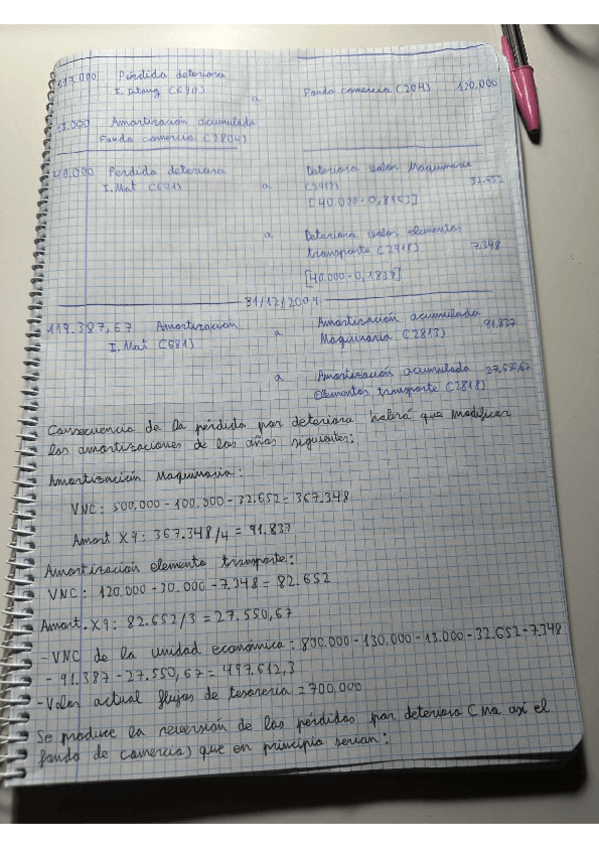 Pérdida deterioro
I. Intang (690)
a
Fondo comercio (204) 120.000
Amortización acumulada
Fondo comercio (2804)
40.000 Perdida deterioro
I. Mat (691)
a
Deterioro valor Maquinaria
(2913) 32.652
[40.000·0,8163]
a Deterioro valor elementos
transporte (2918) 7.348
[40.000·0,1837]
31/12/20
119.387,67 Amortización
I. Mat (681)
a Amortización acumulada
Maquinaria (2813) 91.837
a Amortización acumulada
Elementos transporte (2818) 27.550,67
Consecuencia de la pérdida por deterioro habrá que modificar
las amortizaciones de los años siguientes:
Amortización Maquinaria:
VNC: 500.000 - 100.000 - 32.652 = 367.348
Amort X9: 367.348/4 = 91.837
Amortización elemento transporte:
VNC: 120.000 - 30.000 - 7.348 = 82.652
Amort. X9: 82.652/3 = 27.550,67
- VNC de la unidad económica: 800.000 - 130.000 - 13.000 - 32.652 - 7.348
- 91.387 - 27.550,67 = 497.612,3
- Valor actual flujos de tesorería = 700.000
Se produce la reversión de las pérdidas por deterioro (no así el
fondo de comercio) que en principio serían: